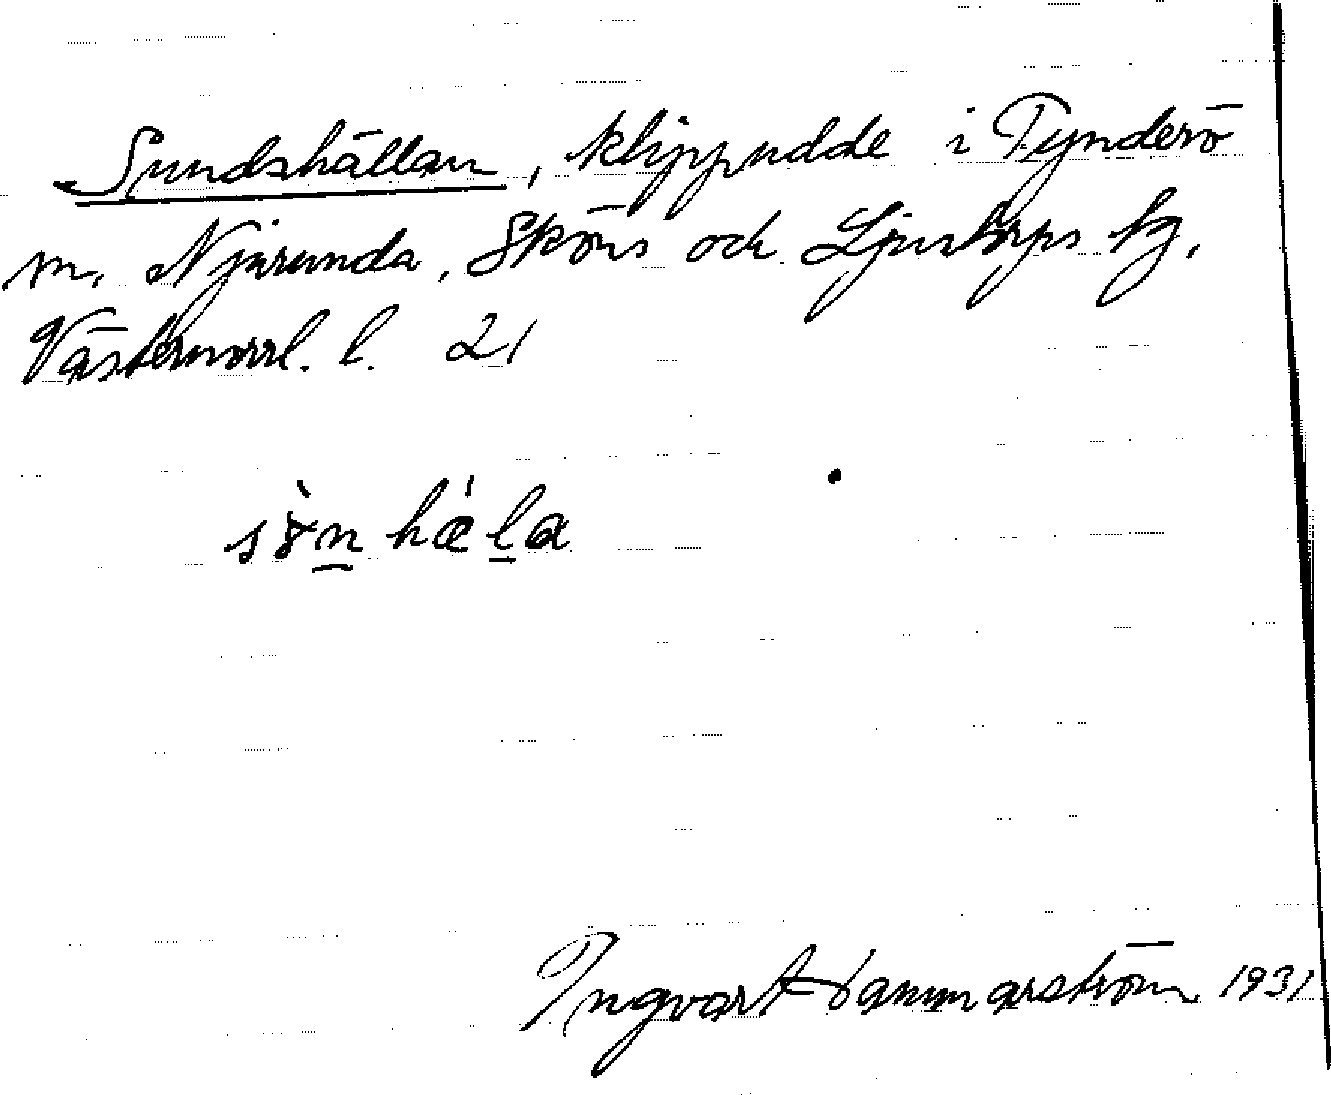 Sundshällan, klippudde i Tynderö
m, Njurunda, Sköns och Ljustorps tg,
Västernorrl. l. 21
hæla
Ingvar Hammarström 1931